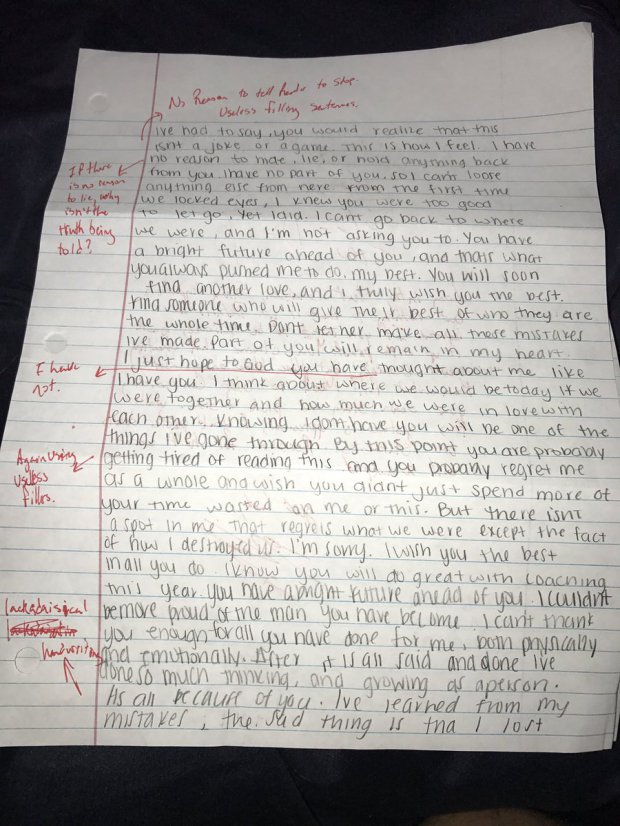 No Reason to tell reader to stop.
Useless filling sentences.
Ive had to say, you would realize that this
isnt a joke or a game. This is how I feel. I have
no reason to hide, lie, or hold anything back
from you. I have no part of you, so I cant loose
anything else from here. From the first time
we locked eyes, I knew you were too good
to let go, yet I did. I cant go back to where
we were, and I'm not asking you to. You have
a bright future ahead of you, and thats what
you always pushed me to do, my best. You will soon
find another love, and I truly wish you the best.
Find someone who will give their best of who they are
the whole time. Dont let her make all these mistakes
Ive made. Part of you will remain in my heart.
I just hope to God you have thought about me like
I have you. I think about where we would be today if we
were together and how much we were in love with
each other. Knowing I dont have you will be one of the
things I've gone through. By this point you are probably
getting tired of reading this and you probably regret me
as a whole and wish you didnt just spend more of
your time wasted on me or this. But there isnt
a spot in me that regrets what we were except the fact
of how I destroyed us. I'm sorry. I wish you the best
in all you do. I know you will do great with coaching
this year. you have a bright future ahead of you. I couldn't
be more proud of the man you have become. I can't thank
you enough for all you have done for me, both physically
and Emotionally. After it is all said and done Ive
done so much thinking, and growing as a person.
Its all because of you. Ive learned from my
mistakes, the sad thing is tha I lost
If there
is no reason
to lie, why
isn't the
truth being
told?
I have
not.
Again using
useless
fillers.
lackadaisical
handwriting